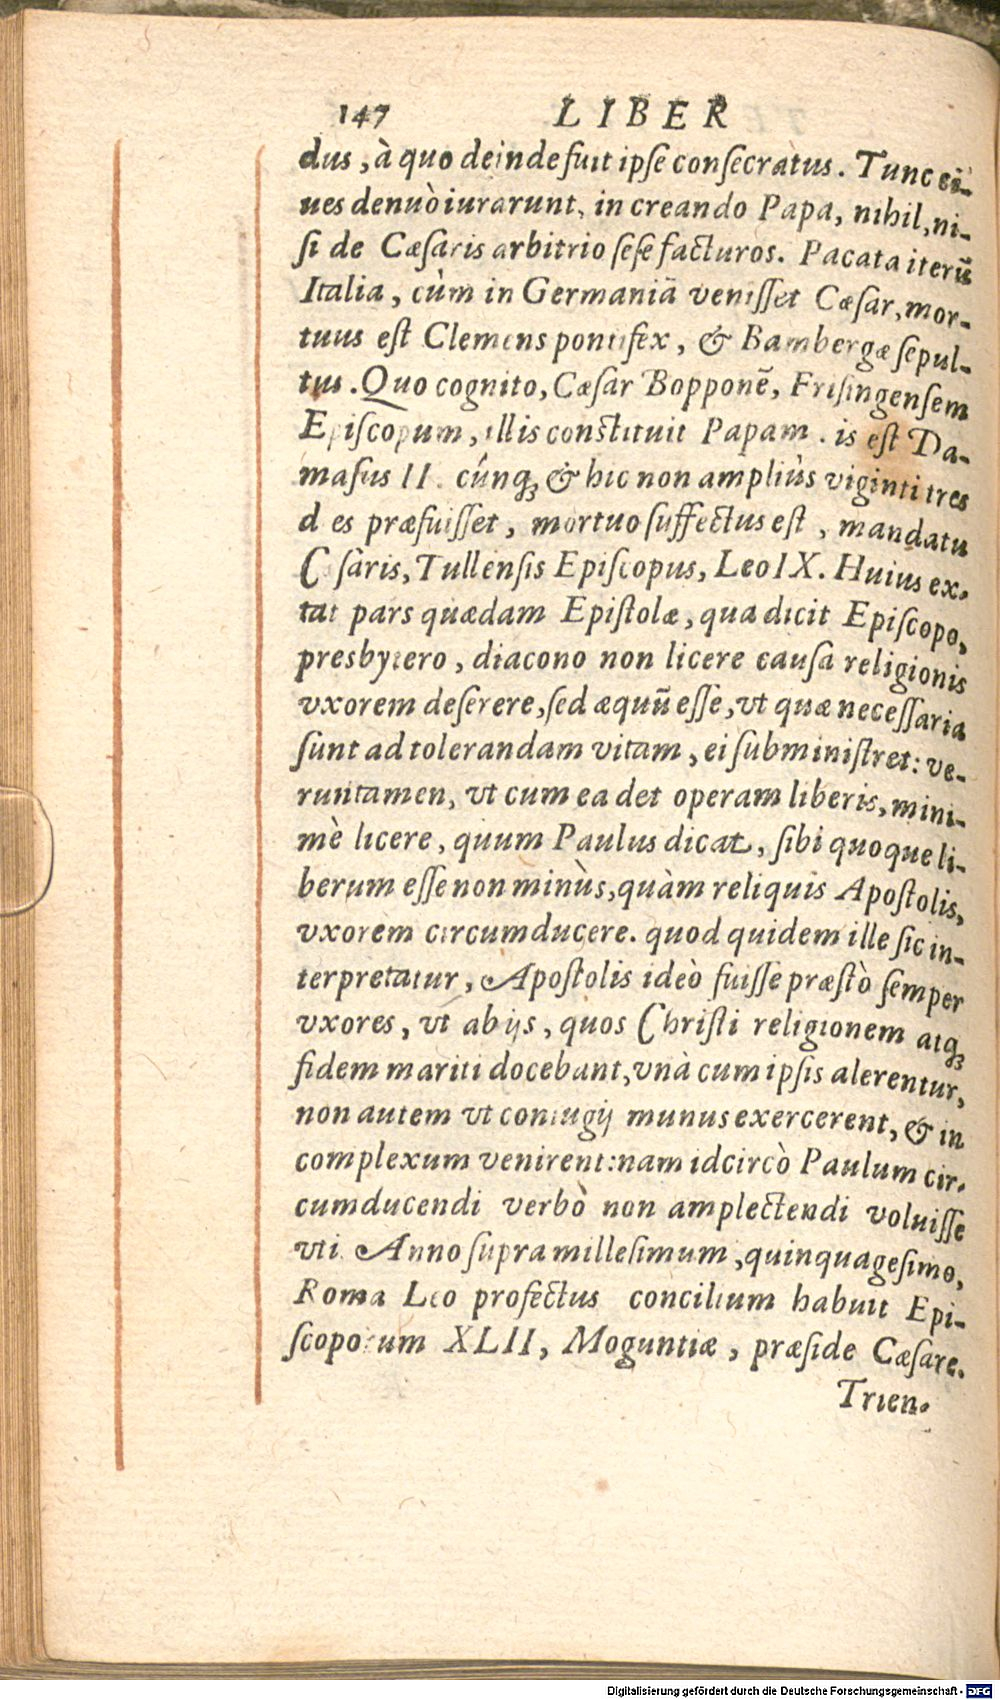 147 LIBER
dus, à quo deinde fuit ipſe conſecratus. Tunc ci-
ues denuò iurarunt, in creando Papa, nihil, ni-
ſi de Cæſaris arbitrio ſeſe facturos. Pacata iterũ
Italia, cùm in Germaniã veniſſet Cæſar, mor-
tuus eſt Clemens pontifex, & Bambergæ ſepul-
tus. Quo cognito, Cæſar Bopponẽ, Friſingenſem
Epiſcopum, illis conſtituit Papam. is eſt Da-
maſus II. cúnq; & hic non ampliùs viginti tres
d es præfuiſſet, mortuo ſuffectus eſt, mandatu
C ſaris, Tullenſis Epiſcopus, Leo IX. Huius ex-
tat pars quædam Epiſtolæ, qua dicit Epiſcopo,
presbytero, diacono non licere cauſa religionis
vxorem deſerere, ſed æquũ eſſe, vt quæ neceſſaria
ſunt ad tolerandam vitam, ei ſubminiſtret: ve-
runtamen, vt cum ea det operam liberis, mini-
mè licere, quum Paulus dicat, ſibi quoque li-
berum eſſe non minùs, quàm reliquis Apoſtolis,
vxorem circumducere. quod quidem ille ſic in-
terpretatur, Apoſtolis ideò fuiſſe præſtò ſemper
vxores, vt ab ijs, quos Chriſti religionem atq;
fidem mariti docebant, vnà cum ipſis alerentur,
non autem vt coniugij munus exercerent, & in
complexum venirent: nam idcircò Paulum cir-
cumducendi verbò non amplectendi voluiſſe
vti. Anno ſupra milleſimum, quinquageſimo,
Roma Leo profectus concilium habuit Epi-
ſcoporum XLII, Moguntiæ, præſide Cæſare.
Trien-
Digitalisierung gefördert durch die Deutsche Forschungsgemeinschaft - DFG